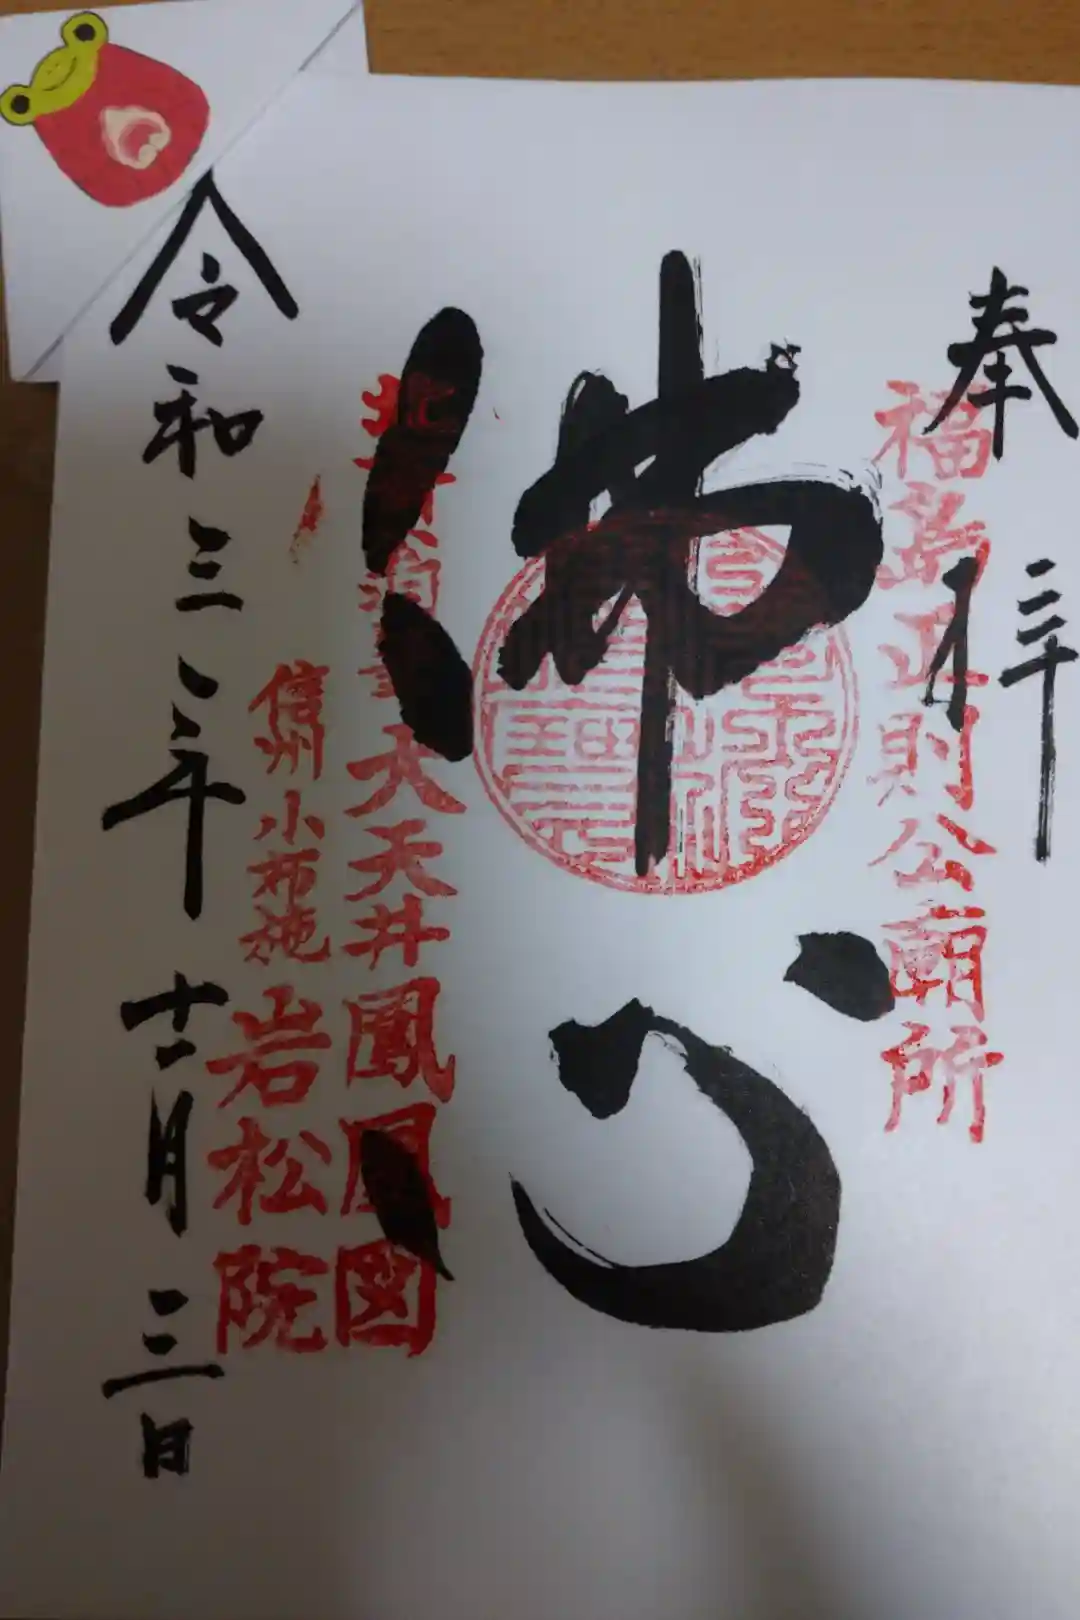 奉拝
福島正則公廟所
佛心
大天井鳳凰図
信州小布施岩松院
令和三年十一月三日